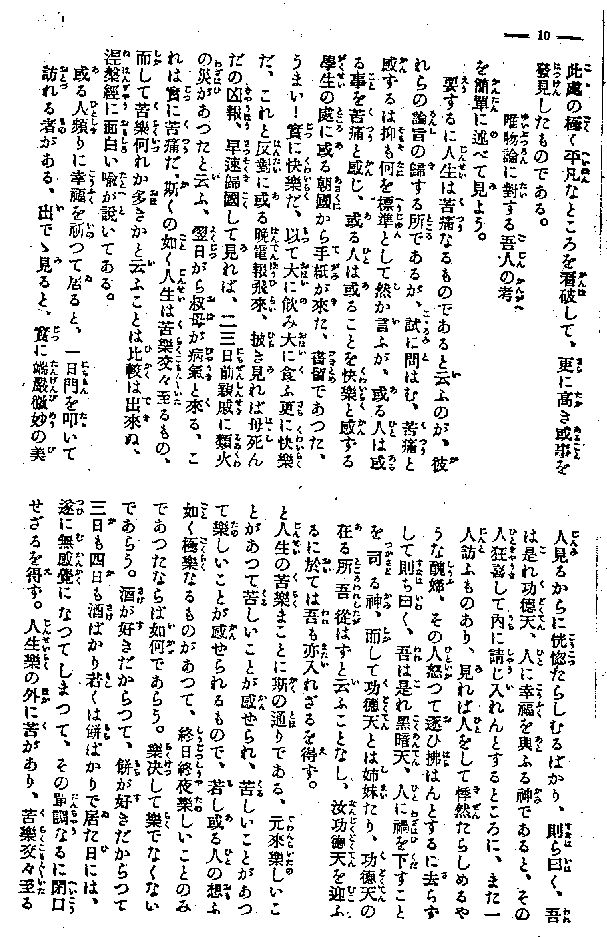 — 10 —
此處の極く平凡なところを看破して、更に高き或事を
發見したものである。
唯物論に對する吾人の考
を簡單に述べて見よう。
要するに人生は苦痛なるものであると云ふのが、彼
れらの論旨の歸する所であるが、試に問はむ、苦痛と
感ずるは抑も何を標準として然か言ふか、或る人は或
る事を苦痛と感じ、或る人は或ることを快樂と感ずる
學生の處に或る朝國から手紙が來た、書留であつた、
うまい！實に快樂だ、以て大に飮み大に食ふ更に快樂
だ、これと反對に或る晩電報飛來、披き見れば母死ん
だの凶報、早速歸國して見れば、二三日前親戚に類火
の災があつたと云ふ、翌日がら叔母が病氣と來る、こ
れは實に苦痛だ、斯くの如く人生は苦樂交々至るもの、
而して苦樂何れか多きかと云ふことは比較は出來ぬ、
涅槃經に面白い喩が說いてある。
或る人頻りに幸福を祈つて居ると、一日門を叩いて
訪れる者がある、出でゝ見ると、實に端嚴微妙の美
人見るからに恍惚たらしむるばかり、則ち曰く、吾
は是れ功德天、人に幸福を與ふる神であると、その
人狂喜して內に請じ入れんとするところに、また一
人訪ふものあり、見れば人をして悸然たらしめるや
うな醜婦、その人怒つて逐ひ拂はんとするに去らず
して則ち曰く、吾は是れ黑暗天、人に禍を下すこと
を司る神、而して功德天とは姉妹たり、功德天の
在る所吾從はずと云ふことなし、汝功德天を迎ふ
るに於ては吾も亦入れざるを得ず。
と人生の苦樂まことに斯の通りである、元來樂しいこ
とがあつて苦しいことが感ぜられ、苦しいことがあつ
て樂しいことが感ぜられるもので、若し或る人の想ふ
如く極樂なるものがあつて、終日終夜樂しいことのみ
であつたならば如何であらう。樂決して樂でなくない
であらう。酒が好きだからつて、餠が好きだからつて
三日も四日も酒ばかり若くは餠ばかりで居た日には、
遂に無感覺になつてしまつて、その單調なるに閉口
せざるを得ず。人生樂の外に苦があり、苦樂交々至る